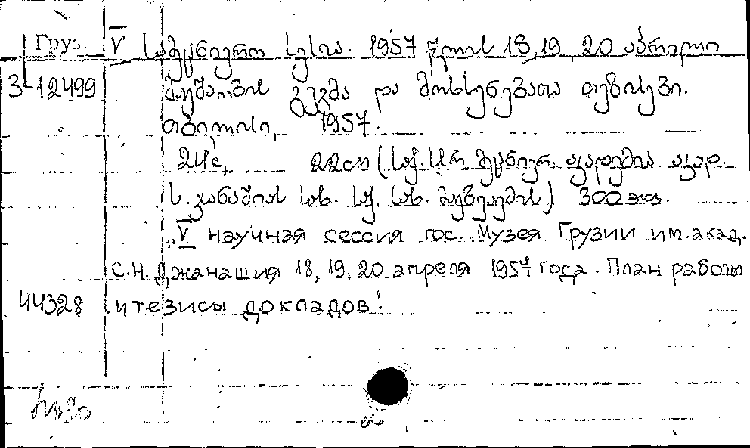 Груз. V სამეცნიერო სესია. 1957 წლის 18, 19, 20 აპრილი
3-12499 მუშაობის გეგმა და მოხსენებათა თეზისები.
თბილისი, 1957.
24с, 22см (საქ. სსრ მეცნიერ. აკადემია აკად.
ს. ჯანაშიას სახ. საქ. სახ. მუზეუმის) 300 экз.
„V научная сессия гос. Музея Грузии им. акад.
С.Н. Джанашия 18, 19, 20 апреля 1957 года. План работы
44328 и тезисы докладов".